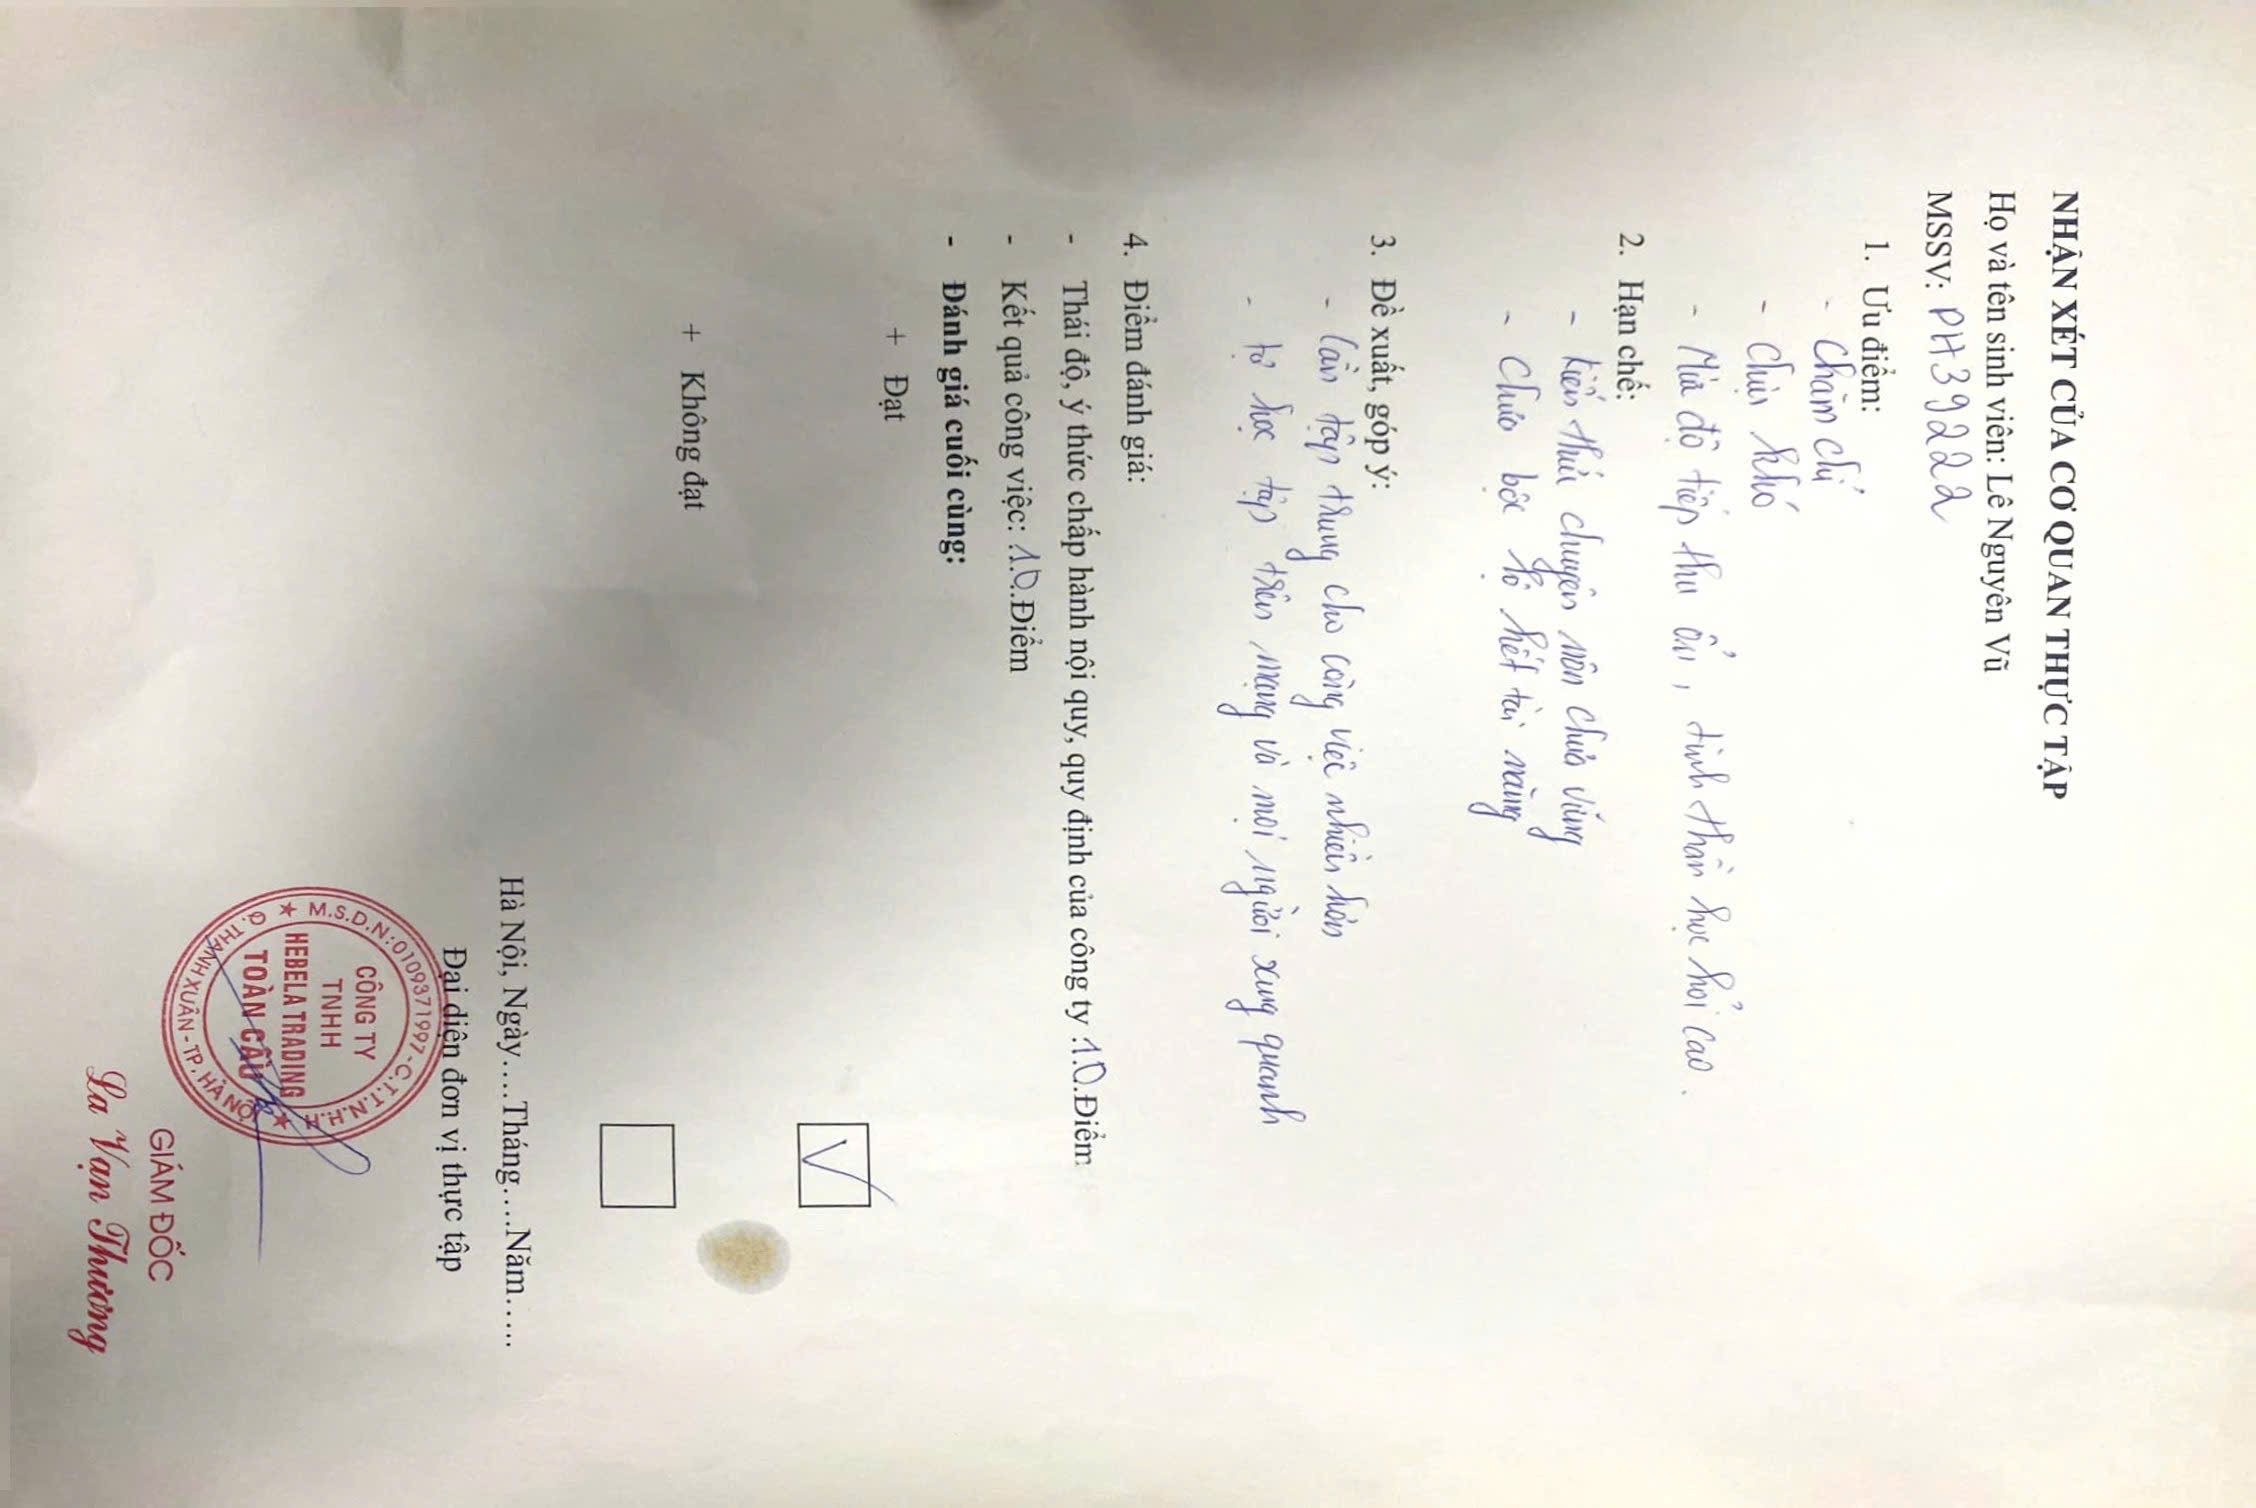 NHẬN XÉT CỦA CƠ QUAN THỰC TẬP
Họ và tên sinh viên: Lê Nguyên Vũ
MSSV: PH39222
1. Ưu điểm:
- Chăm chỉ
- Chịu khó
- Mức độ tiếp thu ổn, tinh thần học hỏi cao.
2. Hạn chế:
- Kiến thức chuyên môn chưa vững
- Chưa bộc lộ hết tài năng
3. Đề xuất, góp ý:
- Cần tập trung cho công việc nhiều hơn
- tự học tập trên mạng và mọi người xung quanh
4. Điểm đánh giá:
- Thái độ, ý thức chấp hành nội quy, quy định của công ty .10.Điểm
- Kết quả công việc: .10.Điểm
- Đánh giá cuối cùng:
+ Đạt
+ Không đạt
Hà Nội, Ngày….Tháng….Năm…..
Đại diện đơn vị thực tập
M.S.D.N:0109371997-C.T.T.N.H.H
CÔNG TY
TNHH
HEBELA TRADING
TOÀN CẦU
Q. THANH XUÂN - TP. HÀ NỘI
GIÁM ĐỐC
La Vạn Thương